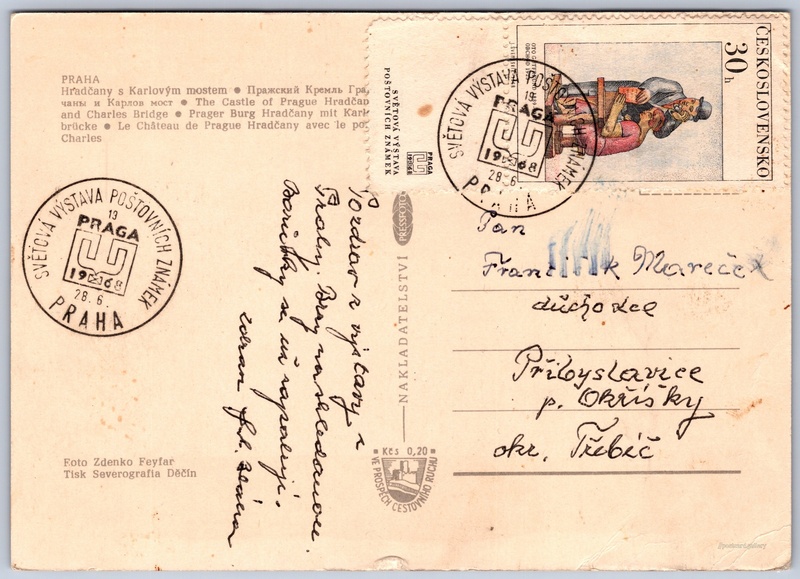 PRAHA
Hradčany s Karlovým mostem • Пражский Кремль Гра
чаны и Карлов мост • The Castle of Prague Hradčan
and Charles Bridge • Prager Burg Hradčany mit Karl
brücke • Le Château de Prague Hradčany avec le po
Charles
SVĚTOVÁ VÝSTAVA POŠTOVNÍCH ZNÁMEK
19
PRAGA
1968
28.6.
PRAHA
Foto Zdenko Feyfar
Tisk Severografia Děčín
Pozdrav z výstavy z
Prahy. Brzy na shledanou.
Báňa
NAKLADATELSTVÍ
PRESSFOTO
Kčs 0,20
VE PROSPĚCH CESTOVNÍHO RUCHU
SVĚTOVÁ VÝSTAVA
POŠTOVNÍCH ZNÁMEK
PRAGA
1968
ČESKOSLOVENSKO
30h
SVĚTOVÁ VÝSTAVA POŠTOVNÍCH ZNÁMEK
19
PRAGA
1968
28.6.
PRAHA
Pan
František Mareček
důchodce
Přibyslavice
p. Okříšky
okr. Třebíč